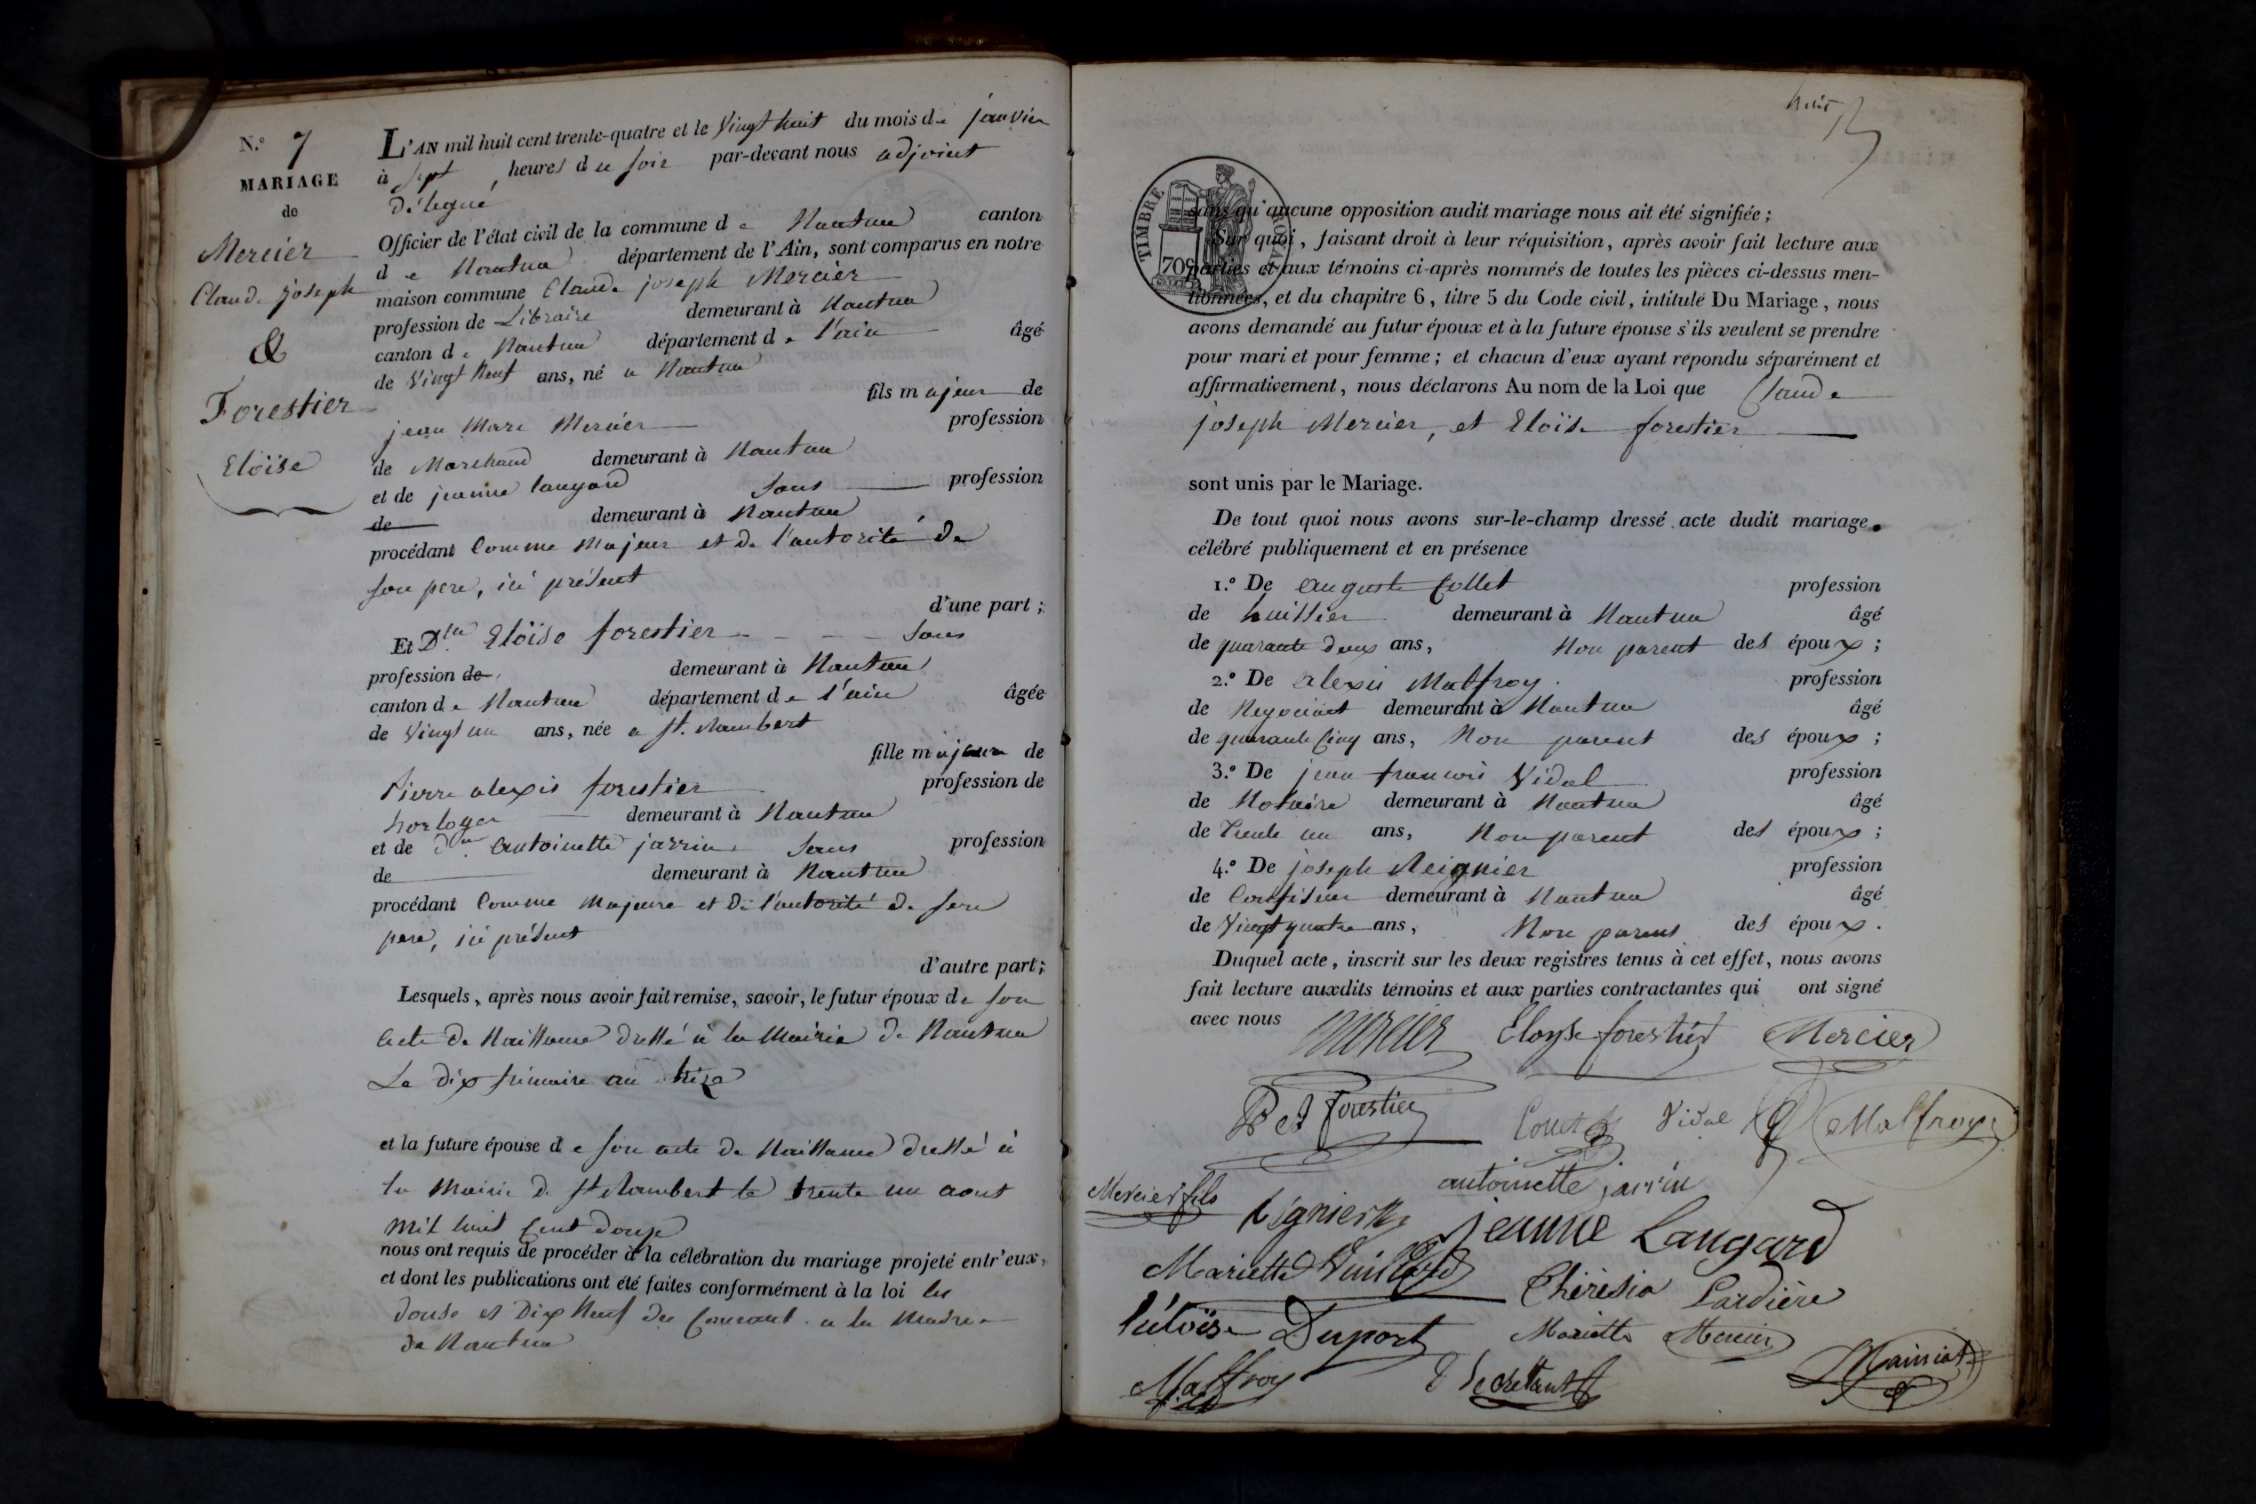 N.º 7
MARIAGE
de
Mercier
Claude joseph
&
Forestier
Eloïse
L'AN mil huit cent trente-quatre et le Vingt huit du mois de janvier
à sept heures du soir par-devant nous adjoint
délégué
Officier de l'état civil de la commune de Nantua canton
de Nantua département de l'Ain, sont comparus en notre
maison commune Claude joseph Mercier
profession de Libraire demeurant à Nantua
canton de Nantua département de l'ain âgé
de Vingt Neuf ans, né a Nantua
fils majeur de
jean Marc Mercier profession
de Marchand demeurant à Nantua
et de jeanne langard Sans profession
de demeurant à Nantua
procédant Comme Majeur et de l'autorité de
son pere, ici présent
d'une part ;
Et Dlle Eloïse forestier Sans
profession de demeurant à Nantua
canton de Nantua département de l'ain âgée
de Vingt un ans, née a St. Rambert
fille majeure de
Pierre alexis forestier profession de
horloger demeurant à Nantua
et de antoinette jarrin Sans profession
de demeurant à Nantua
procédant Comme Majeure et de l'autorité de son
pere, ici présent
d'autre part ;
Lesquels, après nous avoir fait remise, savoir, le futur époux de son
acte de Naissance dressé à la Mairie de Nantua
Le dix frimaire an treize
et la future épouse de son acte de Naissance dressé à
la Mairie de St Rambert le trente un aout
mil huit Cent douze
nous ont requis de procéder à la célébration du mariage projeté entr'eux,
et dont les publications ont été faites conformément à la loi les
douse et Dix Neuf du Courant a la Mairie
de Nantua
huit
TIMBRE ROYAL
70c
sans qu'aucune opposition audit mariage nous ait été signifiée ;
Sur quoi, faisant droit à leur réquisition, après avoir fait lecture aux
parties et aux témoins ci-après nommés de toutes les pièces ci-dessus men-
tionnées, et du chapitre 6, titre 5 du Code civil, intitulé Du Mariage, nous
avons demandé au futur époux et à la future épouse s'ils veulent se prendre
pour mari et pour femme ; et chacun d'eux ayant repondu séparément et
affirmativement, nous déclarons Au nom de la Loi que Claude
joseph Mercier, et Eloïse forestier
sont unis par le Mariage.
De tout quoi nous avons sur-le-champ dressé acte dudit mariage
célébré publiquement et en présence
1.º De auguste Collet profession
de huissier demeurant à Nantua âgé
de quarante deux ans, Non parent des époux ;
2.º De alexis Malfroy profession
de Negociant demeurant à Nantua âgé
de quarante Cinq ans, Non parent des époux ;
3.º De jean francois Vidal profession
de Notaire demeurant à Nantua âgé
de trente un ans, Non parent des époux ;
4.º De joseph Reignier profession
de Confiseur demeurant à Nantua âgé
de Vingt quatre ans, Non parent des époux.
Duquel acte, inscrit sur les deux registres tenus à cet effet, nous avons
fait lecture auxdits témoins et aux parties contractantes qui ont signé
avec nous Mercier Eloyse forestier Mercier
forestier Collet Vidal Malfroy
antoinette jarrin
Mercier fils jeanne Langard
Mariette Thérésia Lardière
Duport Mariette Mercier
Malfroy